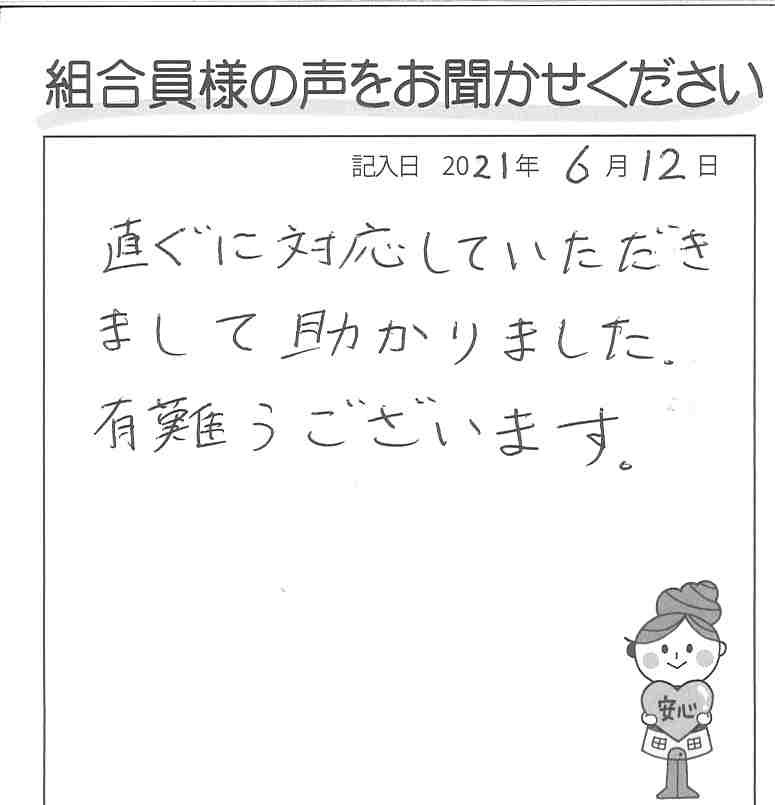 組合員様の声をお聞かせください
記入日 2021年 6月12日
直ぐに対応していただき
まして助かりました。
有難うございます。
安心